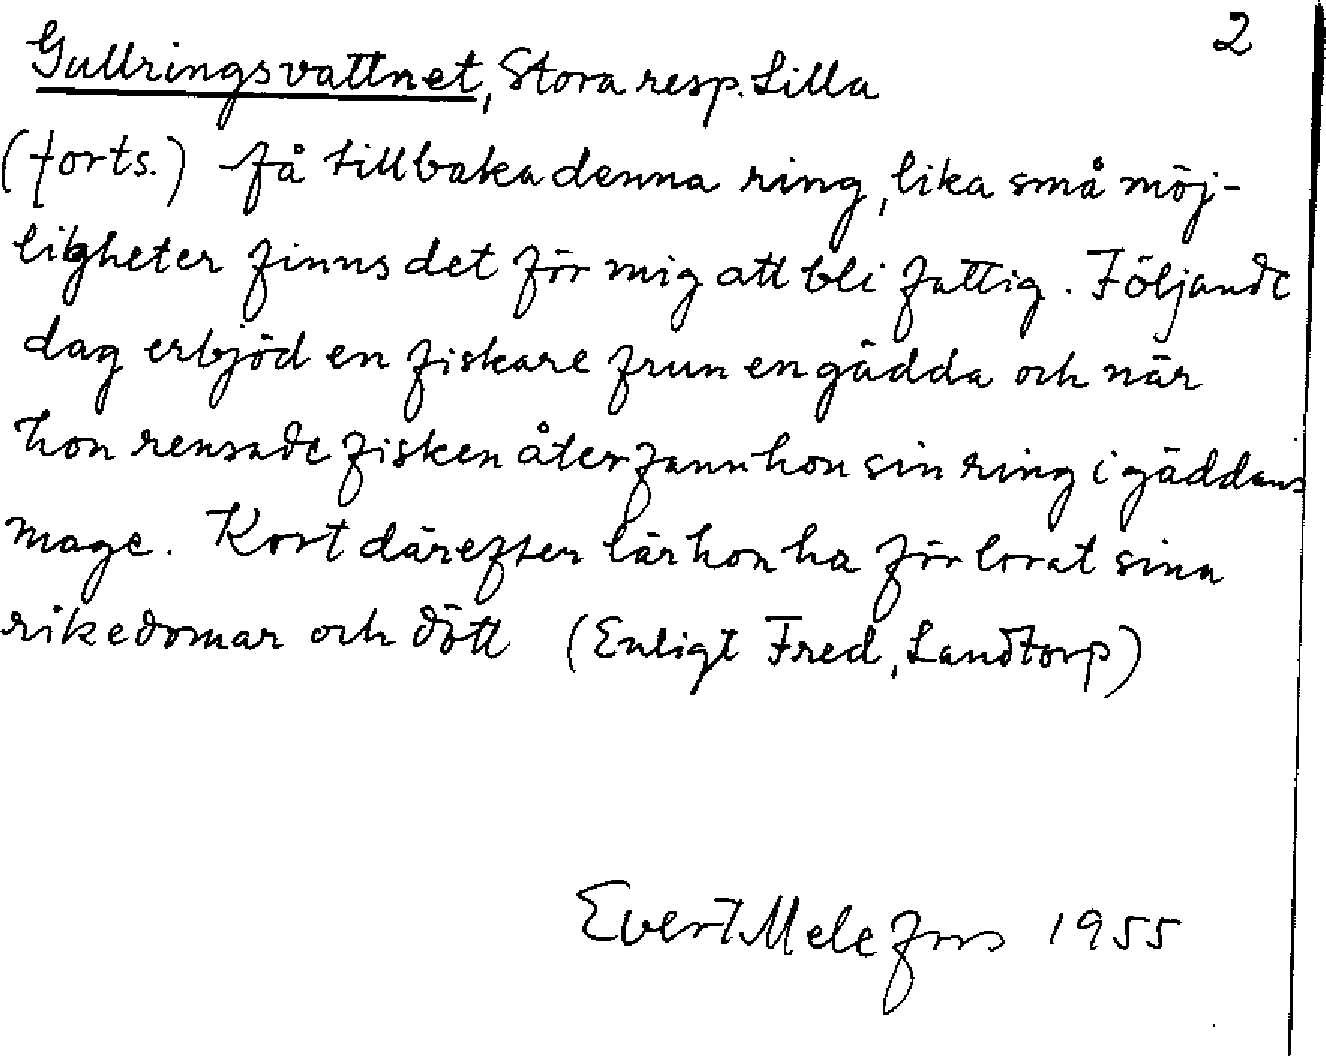 2
Gullringsvattnet, Stora resp. Lilla
(forts.) få tillbaka denna ring, lika små möj-
ligheter finns det för mig att bli fattig. Följande
dag erbjöd en fiskare frun en gädda och när
hon rensade fisken återfann hon sin ring i gäddans
mage. Kort därefter lär hon ha förlorat sina
rikedomar och dött (Enligt Fred, Landtorp)
Evert Melefors 1955